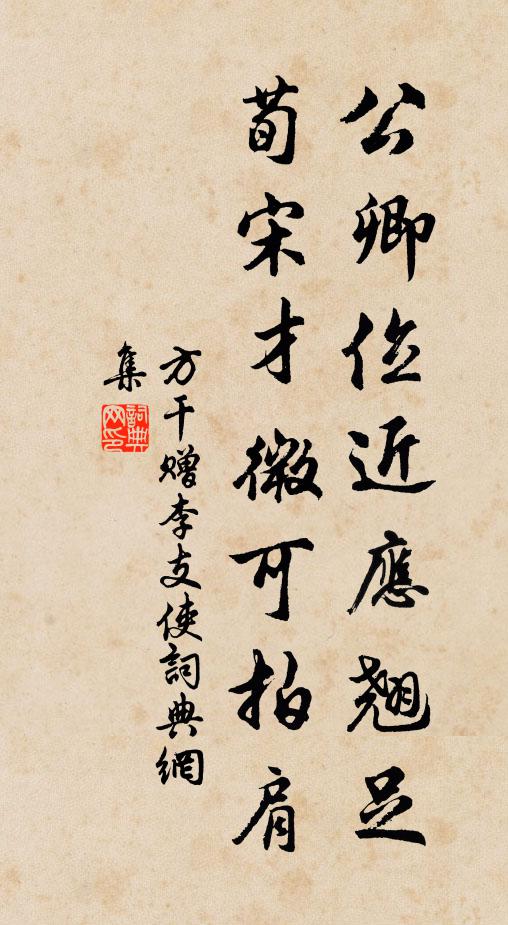 公卿位近應翹足
荀宋才微可拍肩
方干贈李支使詞典網
集
詞典
网印